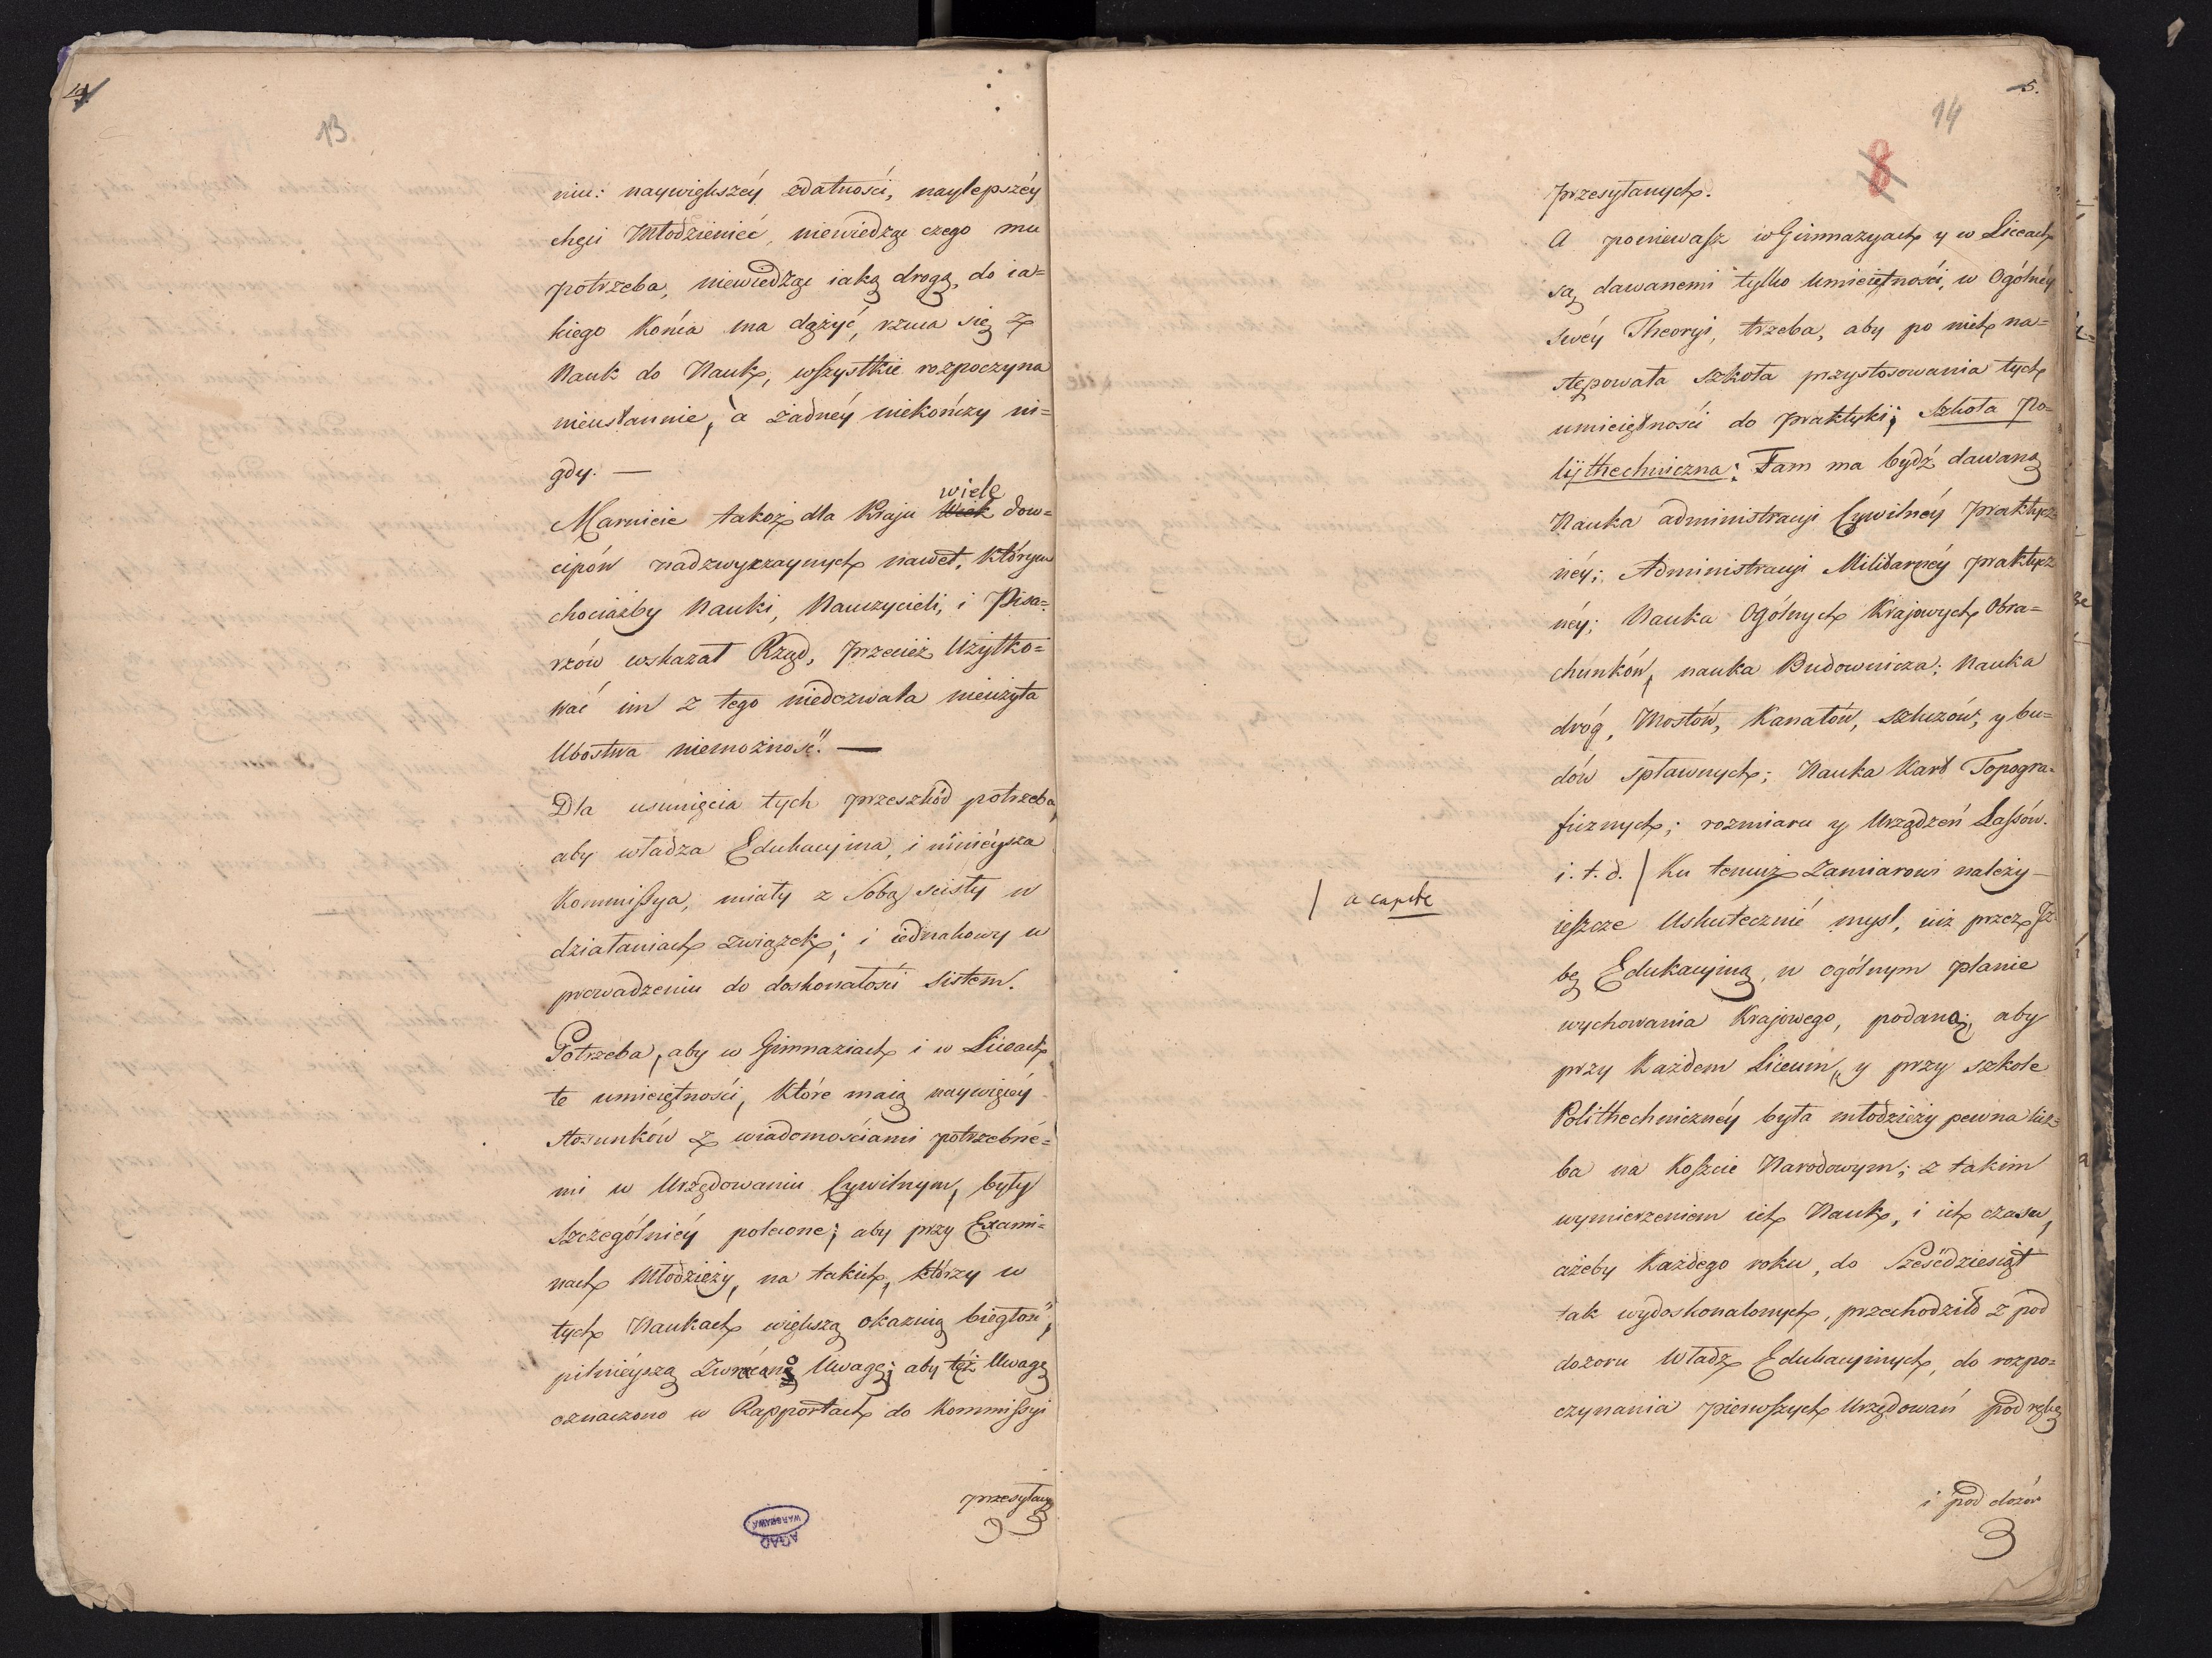 13.
niu: naywiękſzéy zdatności, naylepszéy
chęci Młodzienieć, niewiedząc czego mu
potrzeba, niewiedząc iaką drogą, do ia=
kiego Końca ma dążyć, rzuca się z
Nauk do Nauk, wſzystkie rozpoczyna
nieustannie, a żadnéy niekończy ni=
gdy. —
wiele
Marnieie takoż dla Kraju dow=
cipów nadzwyczaynych nawet, którym
chociażby Nauki, Nauczycieli, i Pisa=
rzów wskazał Rząd, przecież Użytko=
wać im z tego niedozwala nieużyta
Ubostwa niemożność. —
Dla usunięcia tych przeszkód potrzeba,
aby władza Edukacyina, i ninieysza
Kommiſsya, miały z Sobą scisły w
działaniach związek; i iednakowy w
prowadzeniu do doskonałości Sistem.
Potrzeba, aby w Gimnaziach i w Liceach
te umieiętności, które maią naywięcéy
stosunków z wiadomościami potrzebne=
mi w Urzędowaniu Cywilnym, były
Szczególniéy polecone; aby przy Exami=
nach Młodzieży, na takich, którzy w
tych Naukach większą okazuią biegłość,
pilnieyszą zwrócono Uwagę; aby téż Uwagę
oznaczono w Rapportach do Kommiſsyi
przesyłany
AGAD
WARSZAWA
5.
14
8
przesyłanych.
A ponieważ w Gimnazyach y w Liceach
są dawanemi tylko Umieiętności, w Ogólnéy
swéy Theoryi, trzeba, aby po nich na=
stępowała szkoła przystosowania tych
umieiętności do praktyki; Szkoła Po=
lijthechniczna: Tam ma bydź dawaną
Nauka administracyi Cywilnéy praktycz=
néy; Administracyi Militarnéy praktycz
néy; Nauka Ogólnych Krajowych Obra=
chunków, nauka Budownicza; Nauka
dróg, Mostów, Kanałów, szluzów, y bu=
dów spławnych; Nauka Kart Topogra=
ficznych; rozmiaru y Urządzeń Laſsów.
i. t. d. / Ku temuż Zamiarowi należy
/ a capite
ieſzcze Uskutecznić mysl, iuż przez Jz
bę Edukacyiną, w ogólnym planie
wychowania Krajowego, podaną; aby
przy każdem Liceum, y przy szkole
Polithechnicznéy była młodzieży pewna licz=
ba na Koſzcie Narodowym; z takim
wymierzeniem ich Nauk, i ich czasu,
ażeby każdego roku, do Sześćdziesiąt
tak wydoskonalonych, przechodziło z pod
dozoru Władz Edukacyinych, do rozpo=
czynania pierwſzych Urzędowań pod ręką
i pod dozór
3